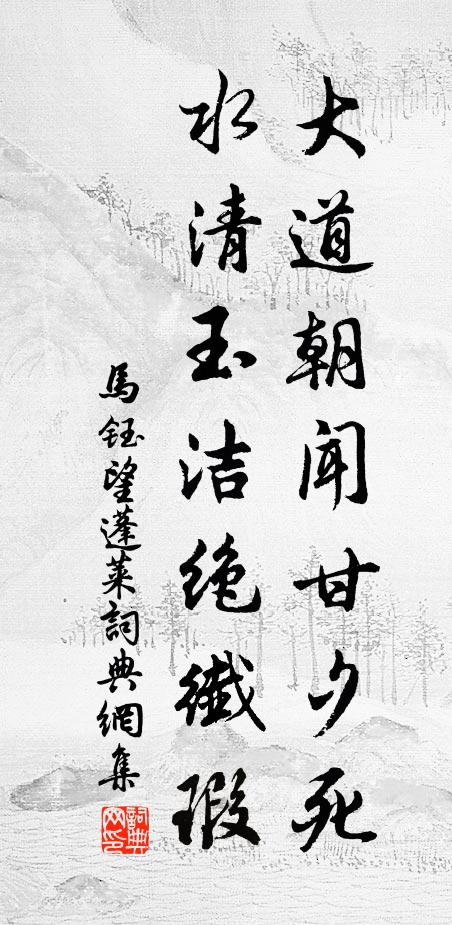 大道朝闻甘夕死
水清玉洁绝纖瑕
馬鈺望蓬萊詞典網集
詞典網印